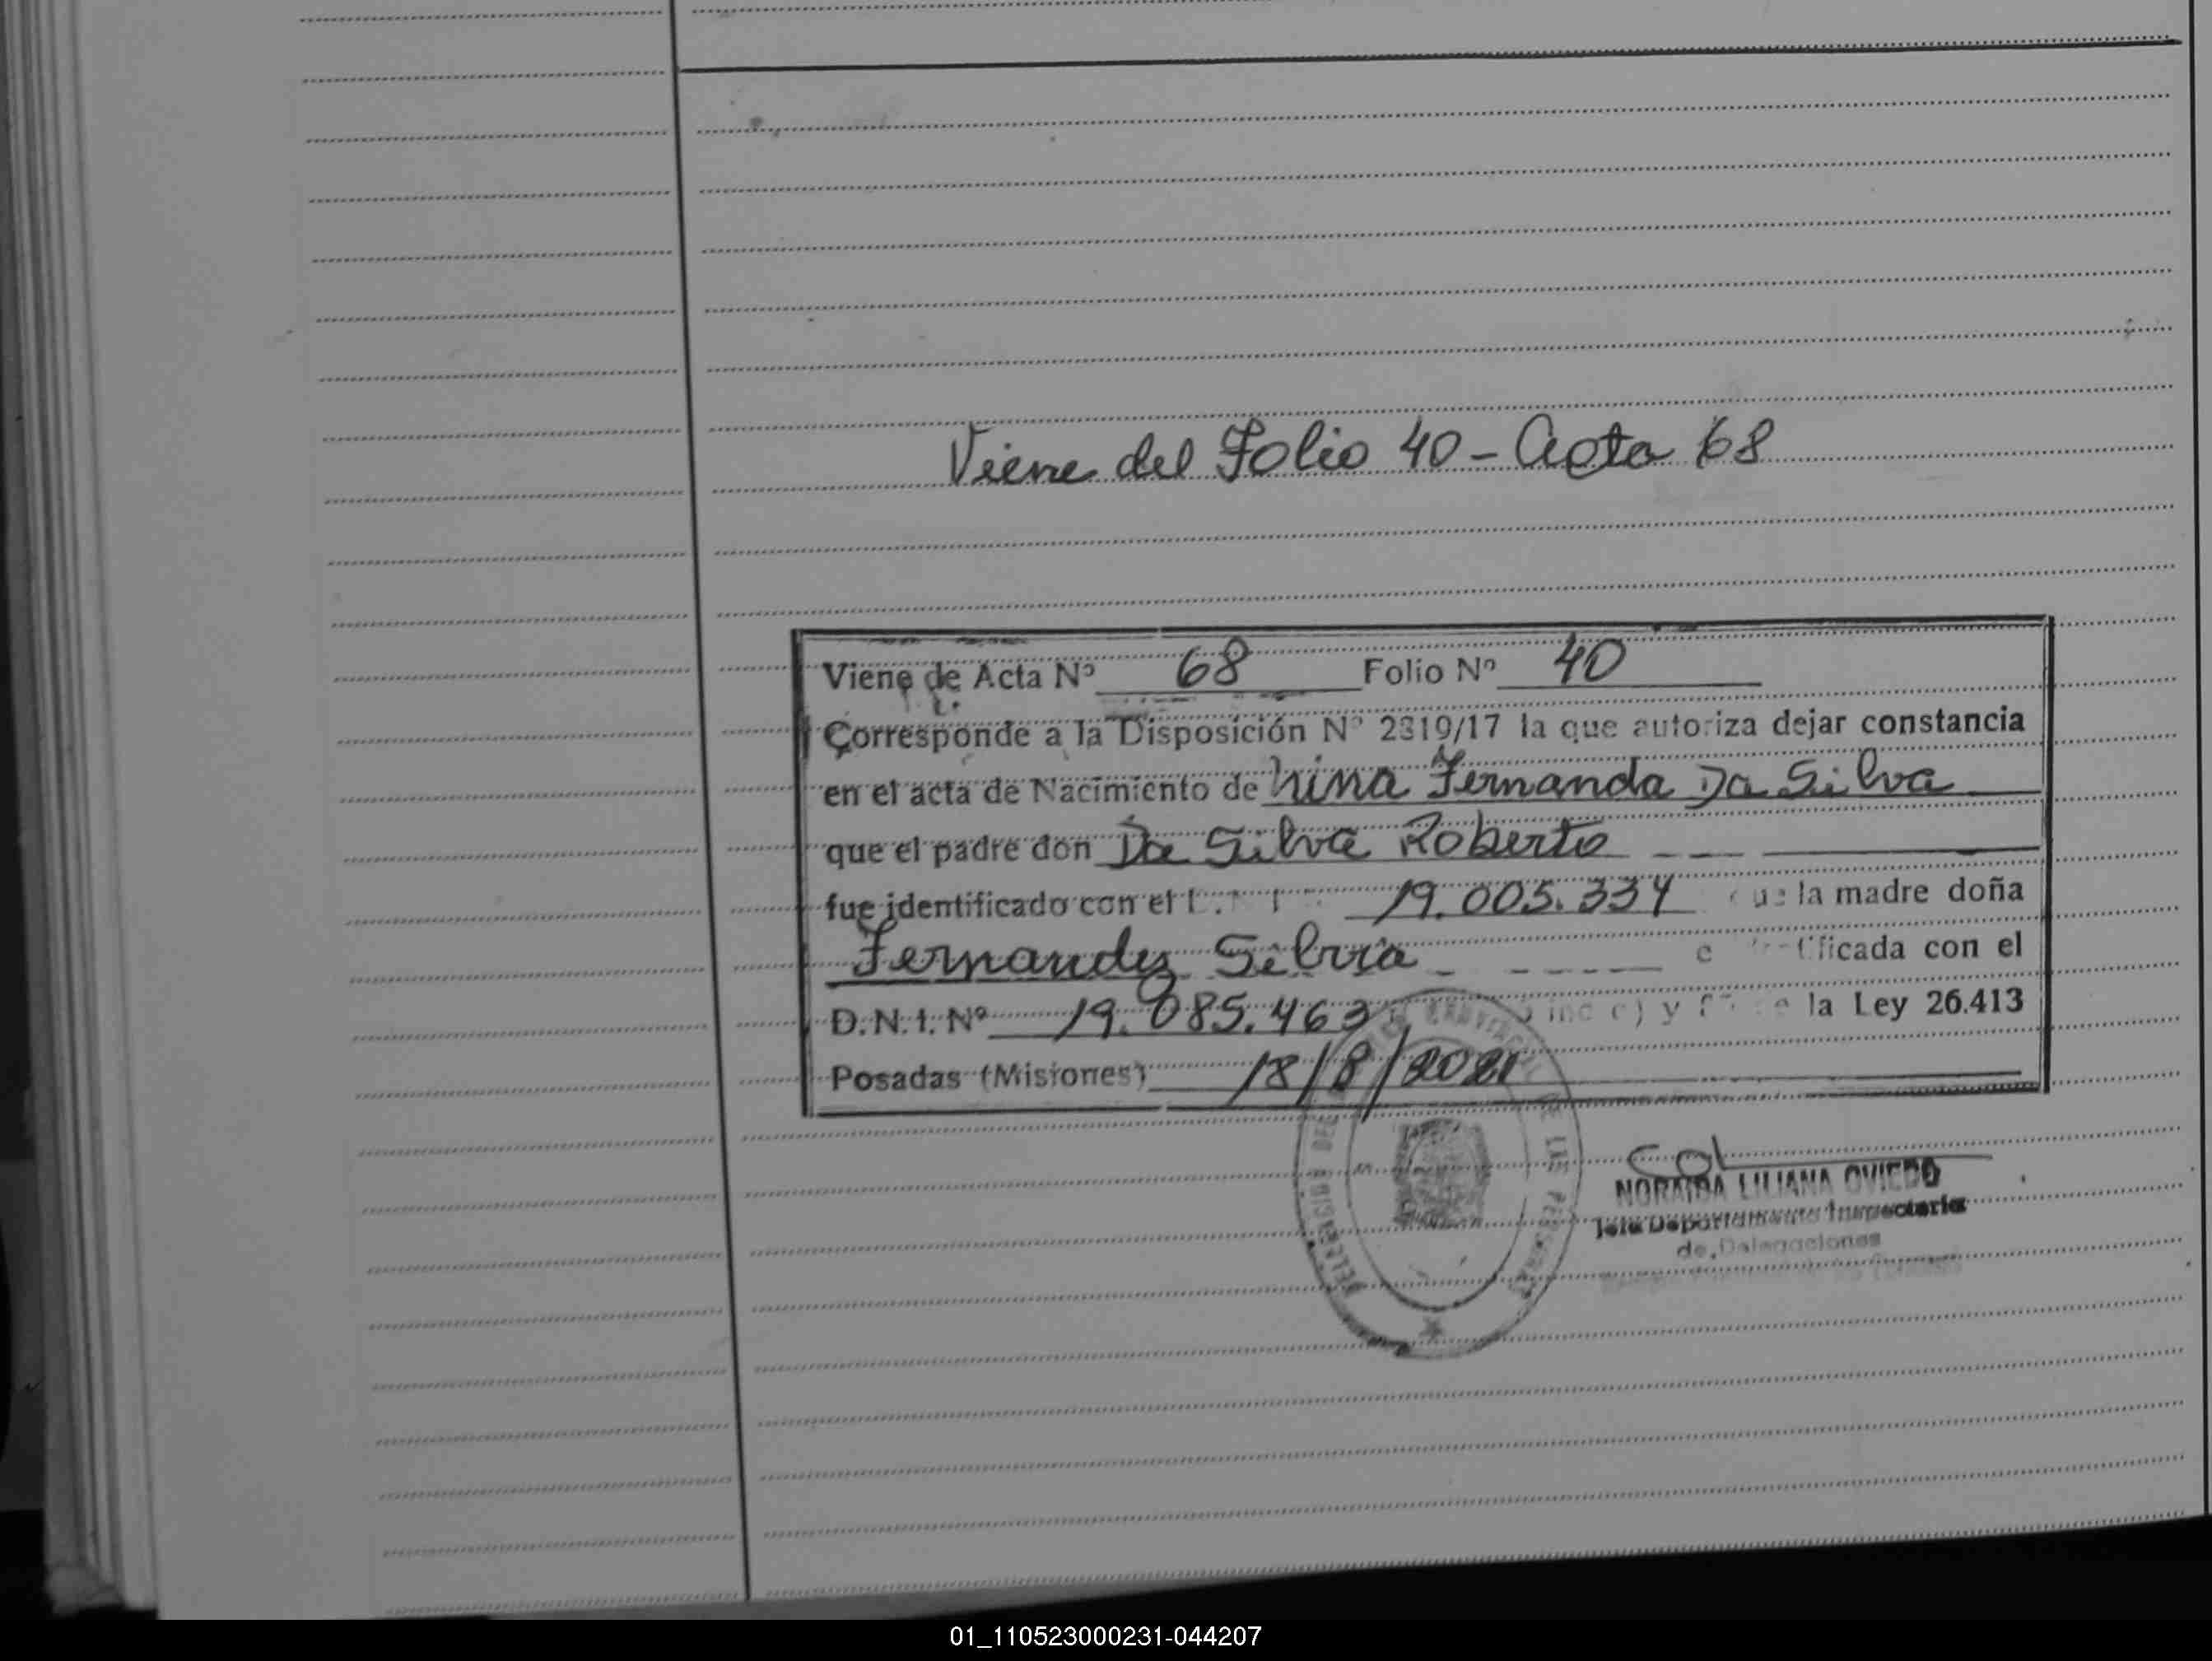 Viene del Folio 40 - Acta 68
Viene de Acta Nº 68 Folio Nº 40
Corresponde a la Disposición Nº 2319/17 la que autoriza dejar constancia
en el acta de Nacimiento de Nina Fernanda Da Silva
que el padre don Da Silva Roberto
fue identificado con el 19.005.334 que la madre doña
Fernandez Silvia
con el
D.N.I. Nº 19.085.463 inc c) y la Ley 26.413
Posadas (Misiones) 18/8/2021
NORAIDA LILIANA OVIEDO
Jefe Departamento Inspectoria
de Delegaciones
01_110523000231-044207